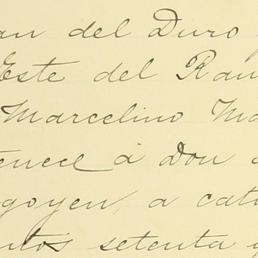 an del Duro
Este del Ran
Marcelino Ma
tenece á Don
goyen, a cato
ntos setenta y